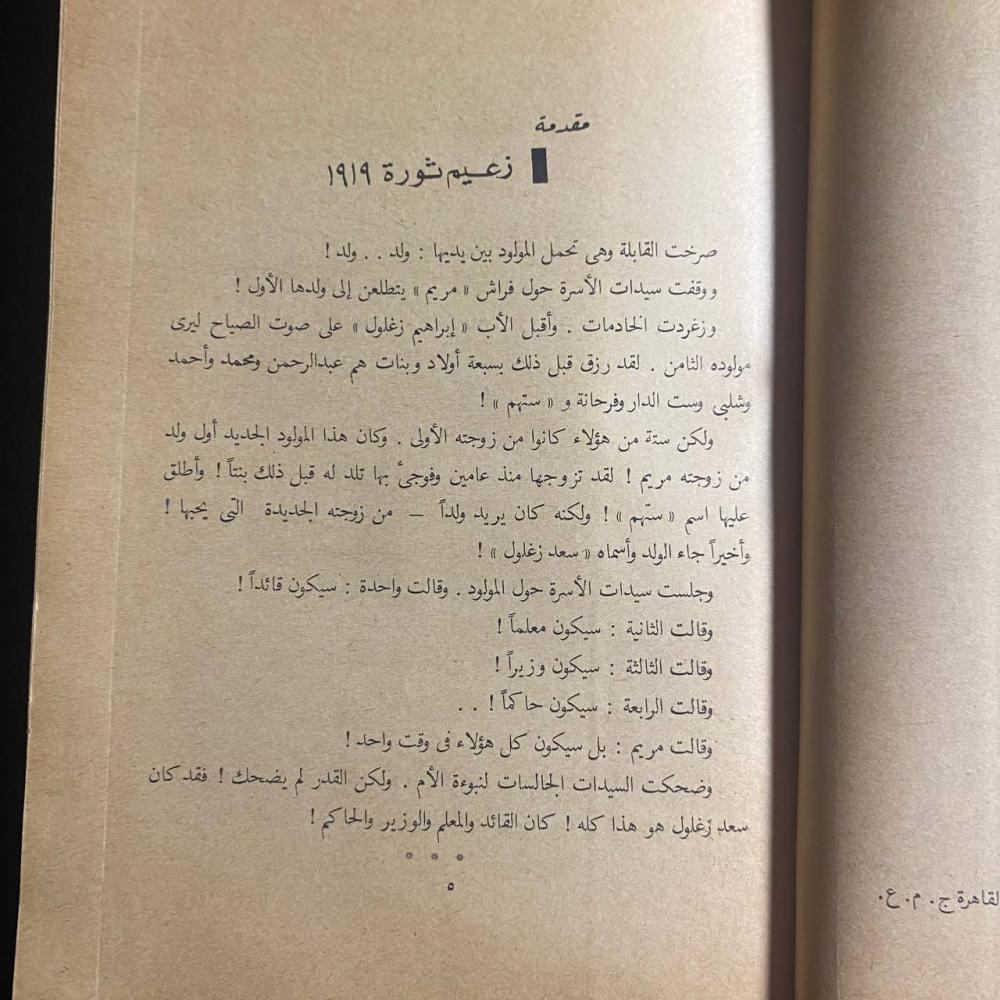 مقدمة
زعيم ثورة ١٩١٩
صرخت القابلة وهى تحمل المولود بين يديها : ولد . . ولد !
ووقفت سيدات الأسرة حول فراش « مريم » يتطلعن إلى ولدها الأول !
وزغردت الخادمات . وأقبل الأب « إبراهيم زغلول » على صوت الصياح ليرى
مولوده الثامن . لقد رزق قبل ذلك بسبعة أولاد وبنات هم عبدالرحمن ومحمد وأحمد
وشلبى وست الدار وفرحانة و « ستهم » !
ولكن ستة من هؤلاء كانوا من زوجته الأولى . وكان هذا المولود الجديد أول ولد
من زوجته مريم ! لقد تزوجها منذ عامين وفوجئ بها تلد له قبل ذلك بنتاً ! وأطلق
عليها اسم « ستهم » ! ولكنه كان يريد ولداً – من زوجته الجديدة التى يحبها !
وأخيراً جاء الولد وأسماه « سعد زغلول » !
وجلست سيدات الأسرة حول المولود . وقالت واحدة : سيكون قائداً !
وقالت الثانية : سيكون معلماً !
وقالت الثالثة : سيكون وزيراً !
وقالت الرابعة : سيكون حاكماً ! . .
وقالت مريم : بل سيكون كل هؤلاء فى وقت واحد !
وضحكت السيدات الجالسات لنبوءة الأم . ولكن القدر لم يضحك ! فقد كان
سعد زغلول هو هذا كله ! كان القائد والمعلم والوزير والحاكم !
* * *
٥
لقاهرة ج. م. ع.